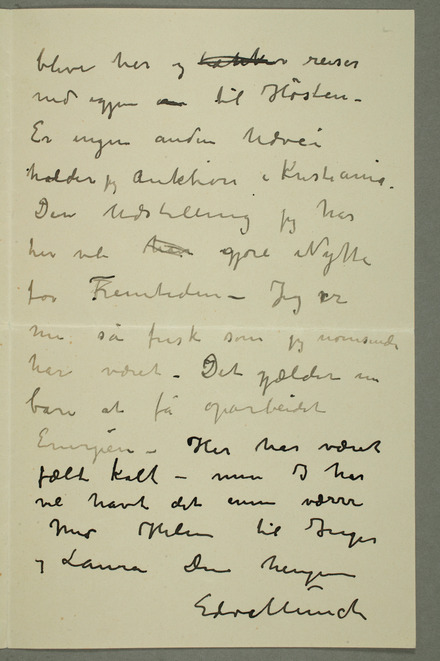 blive her og reiser
ned igjen til Hösten –
Er ingen anden Udvei
holder jeg Auktion i Kristiania.
Den Udstilling jeg har
her vil gjøre Nytte
for Fremtiden – Jeg er
nu så frisk som jeg nomsinde
har været – Det gjælder nu
bare at få oparbeidet
Energien – Her har været
fælt kalt – men I har
vel havt det ennu værre
Med Hilsen til Inger
og Laura Din hengivne
Edv Munch